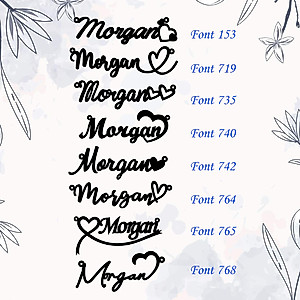 Morgan Font 153
Morgan Font 719
Morgan Font 735
Morgan Font 740
Morgan Font 742
Morgan Font 764
Morgan Font 765
Morgan Font 768